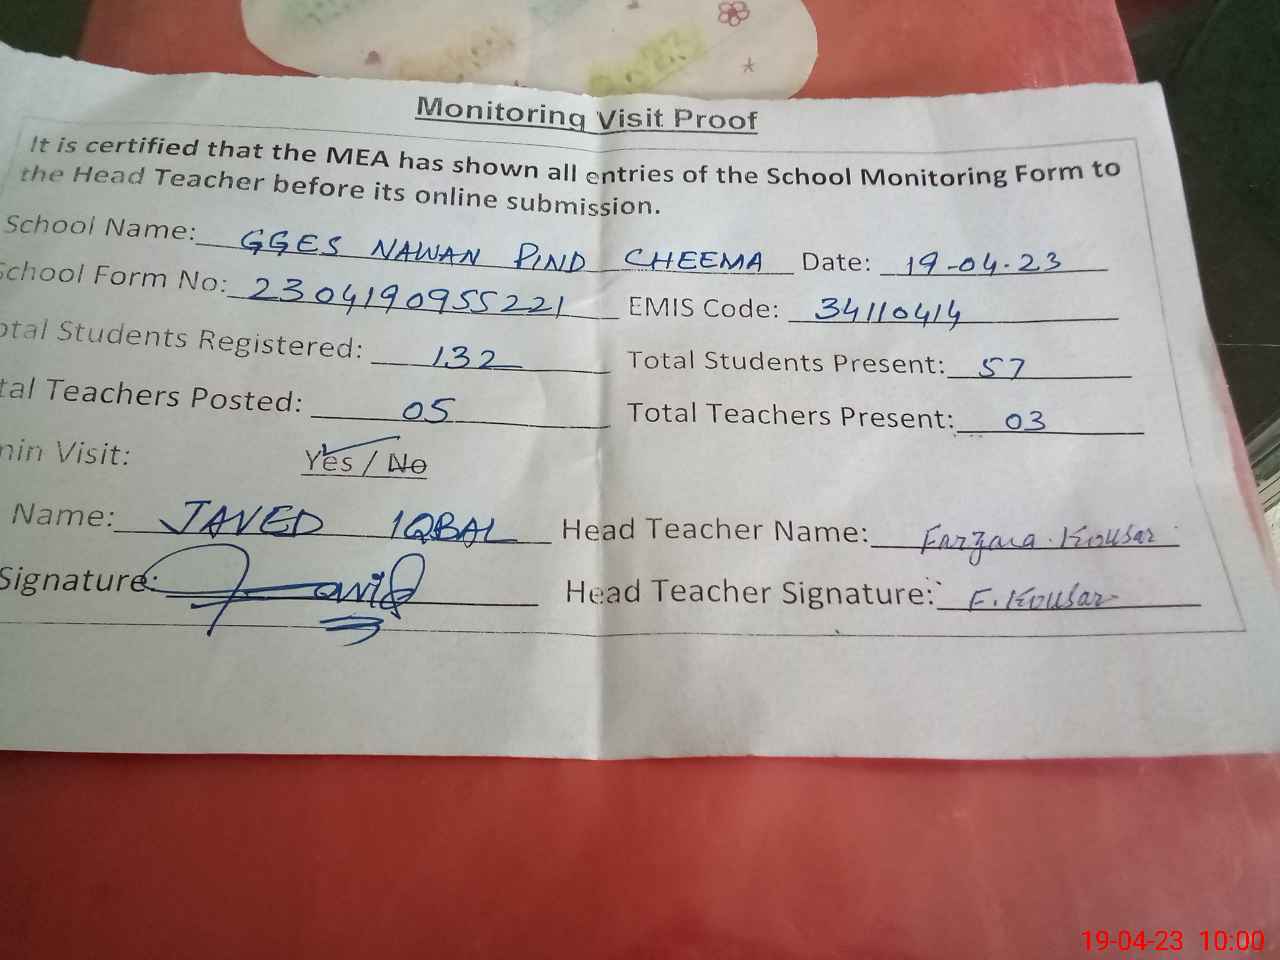 Monitoring Visit Proof
It is certified that the MEA has shown all entries of the School Monitoring Form to
the Head Teacher before its online submission.
School Name: GGES NAWAN PIND CHEEMA Date: 19-04-23
School Form No: 2304190955221 EMIS Code: 34110414
otal Students Registered: 132 Total Students Present: 57
tal Teachers Posted: 05 Total Teachers Present: 03
min Visit: Yes / No
Name: JAVED IQBAL Head Teacher Name: Farzana Kousar
Signature: Javid Head Teacher Signature: F. Kousar
19-04-23 10:00